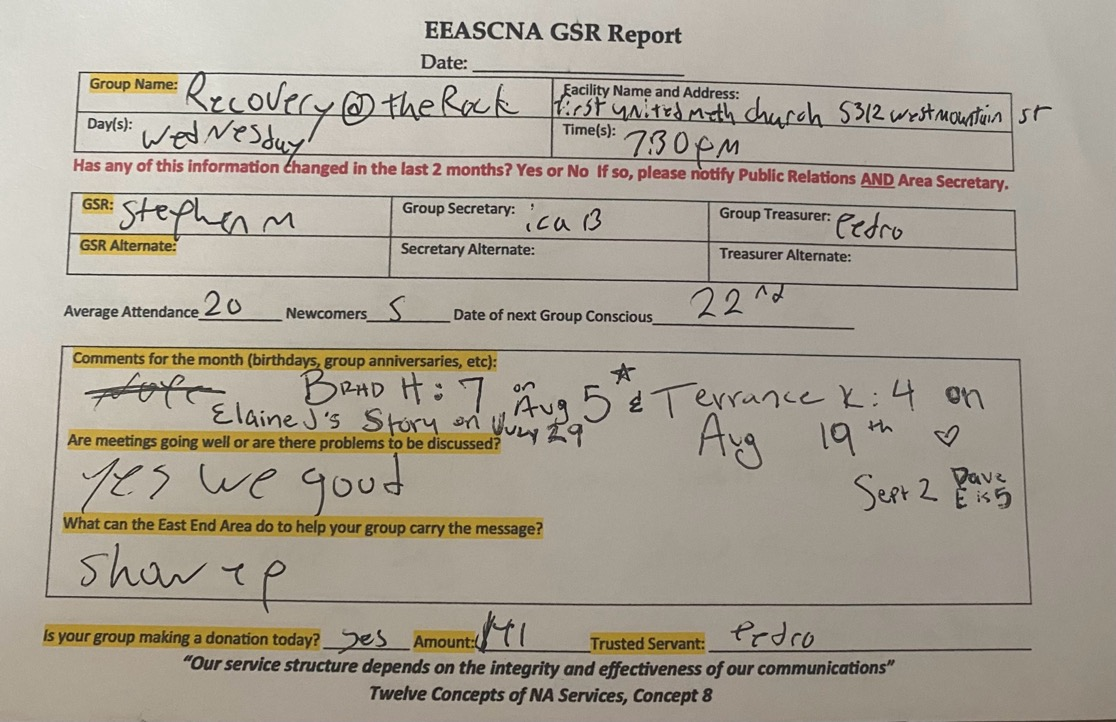 EEASCNA GSR Report
Date:
Group Name: Recovery @ the Rock
Facility Name and Address: first united meth church 5312 west mountain st
Day(s): Wednesday
Time(s): 7:30 pm
Has any of this information changed in the last 2 months? Yes or No If so, please notify Public Relations AND Area Secretary.
GSR: Stephen M
Group Secretary: ica B
Group Treasurer: Pedro
GSR Alternate:
Secretary Alternate:
Treasurer Alternate:
Average Attendance 20 Newcomers 5 Date of next Group Conscious 22nd
Comments for the month (birthdays, group anniversaries, etc):
BRAD H: 7 on Aug 5 ☆ & Terrance K: 4 on Aug 19th ♡
Elaine J's Story on July 29
Sept 2 Dave E is 5
Are meetings going well or are there problems to be discussed?
Yes we good
What can the East End Area do to help your group carry the message?
Show up
Is your group making a donation today? yes Amount: $41 Trusted Servant: Pedro
"Our service structure depends on the integrity and effectiveness of our communications"
Twelve Concepts of NA Services, Concept 8